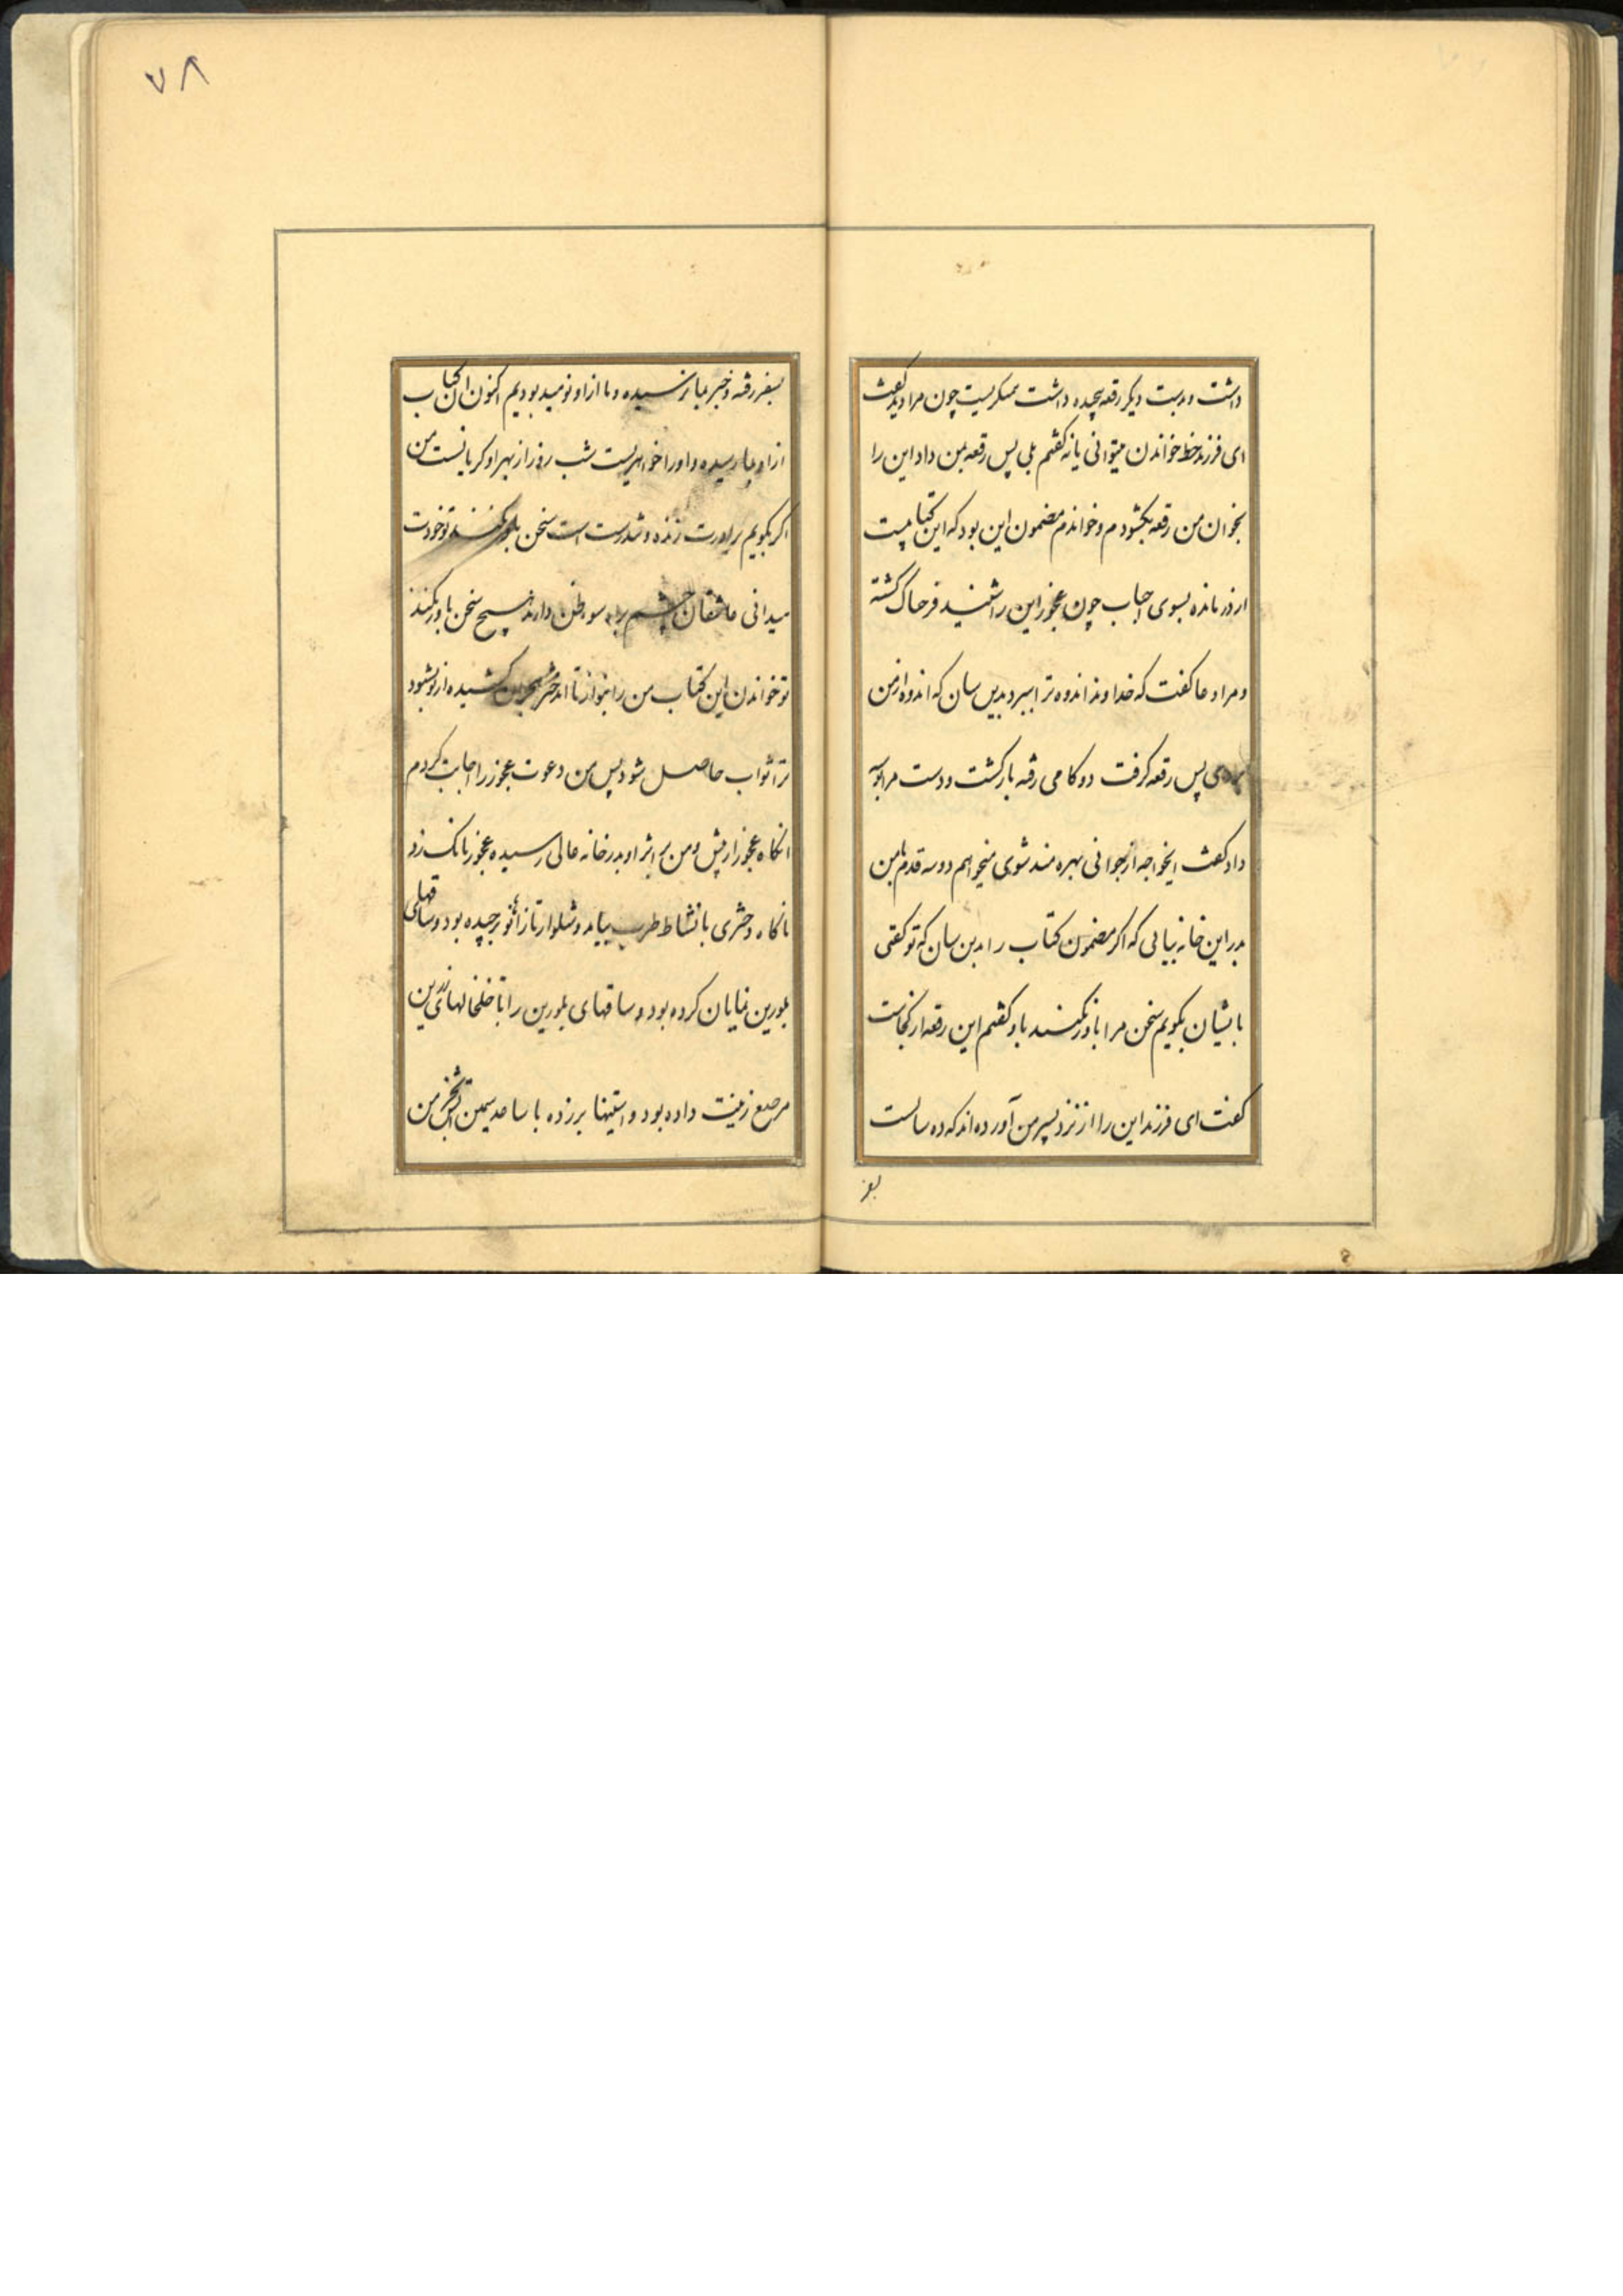 داشت و بدست دیکر رقعه پیچده داشت همیکریست چون مرا دید کفت
ای فرزند خط خواندن میتوانی یا نه کفتم بلی پس رقعه بمن داد این را
بخوان من رقعه بکشودم و خواندم مضمون این بود که این کتابیست
از دور مانده بسوی احباب چون عجوز این را شنید فرحناک کشته
و مرا دعا کفت که خداوند اندوه ترا ببرد بدین سان که اندوه از من
بردی پس رقعه کرفت دو کامی رفته بازکشت و دست مرا بوسه
داد کفت ایخواجه از جوانی بهره مند شوی میخواهم دو سه قدم با من
بدر این خانه بیائی که اکر مضمون کتاب را بدین سان که تو کفتی
بایشان بکویم سخن مرا باور نکنند باو کفتم این رقعه از کجاست
کفت ای فرزند این را از نزد پسر من آورده اند که ده سالست
بسفر
۷۸
بسفر رفته و خبر بما نرسیده و ما از او نومید بودیم اکنون این کتاب
از او بما رسیده و او را خواهریست شب و روز از بهر او کریانست من
اکر بکویم برادرت زنده و تندرست است سخن باور نکنند تو خودت
میدانی عاشقان چشم براه سوء ظن دارند هیچ سخن باور نکنند
تو خواندن این کتاب من را بنواز تا دختر هجران کشیده از تو بشنود
ترا ثواب حاصل شود پس من دعوت عجوز را اجابت کردم
آنکاه عجوز از پیش و من بر اثر او بدر خانه عالی رسیده عجوز بانک زد
ناکاه دختری با نشاط طرب بیامد و شلوار تا زانو برچیده بود و ساقهای
بلورین نمایان کرده بود و ساقهای بلورین را با خلخالهای زرین
مرصع زینت داده بود و آستینها بر زده با ساعد سیمین آن دختر من